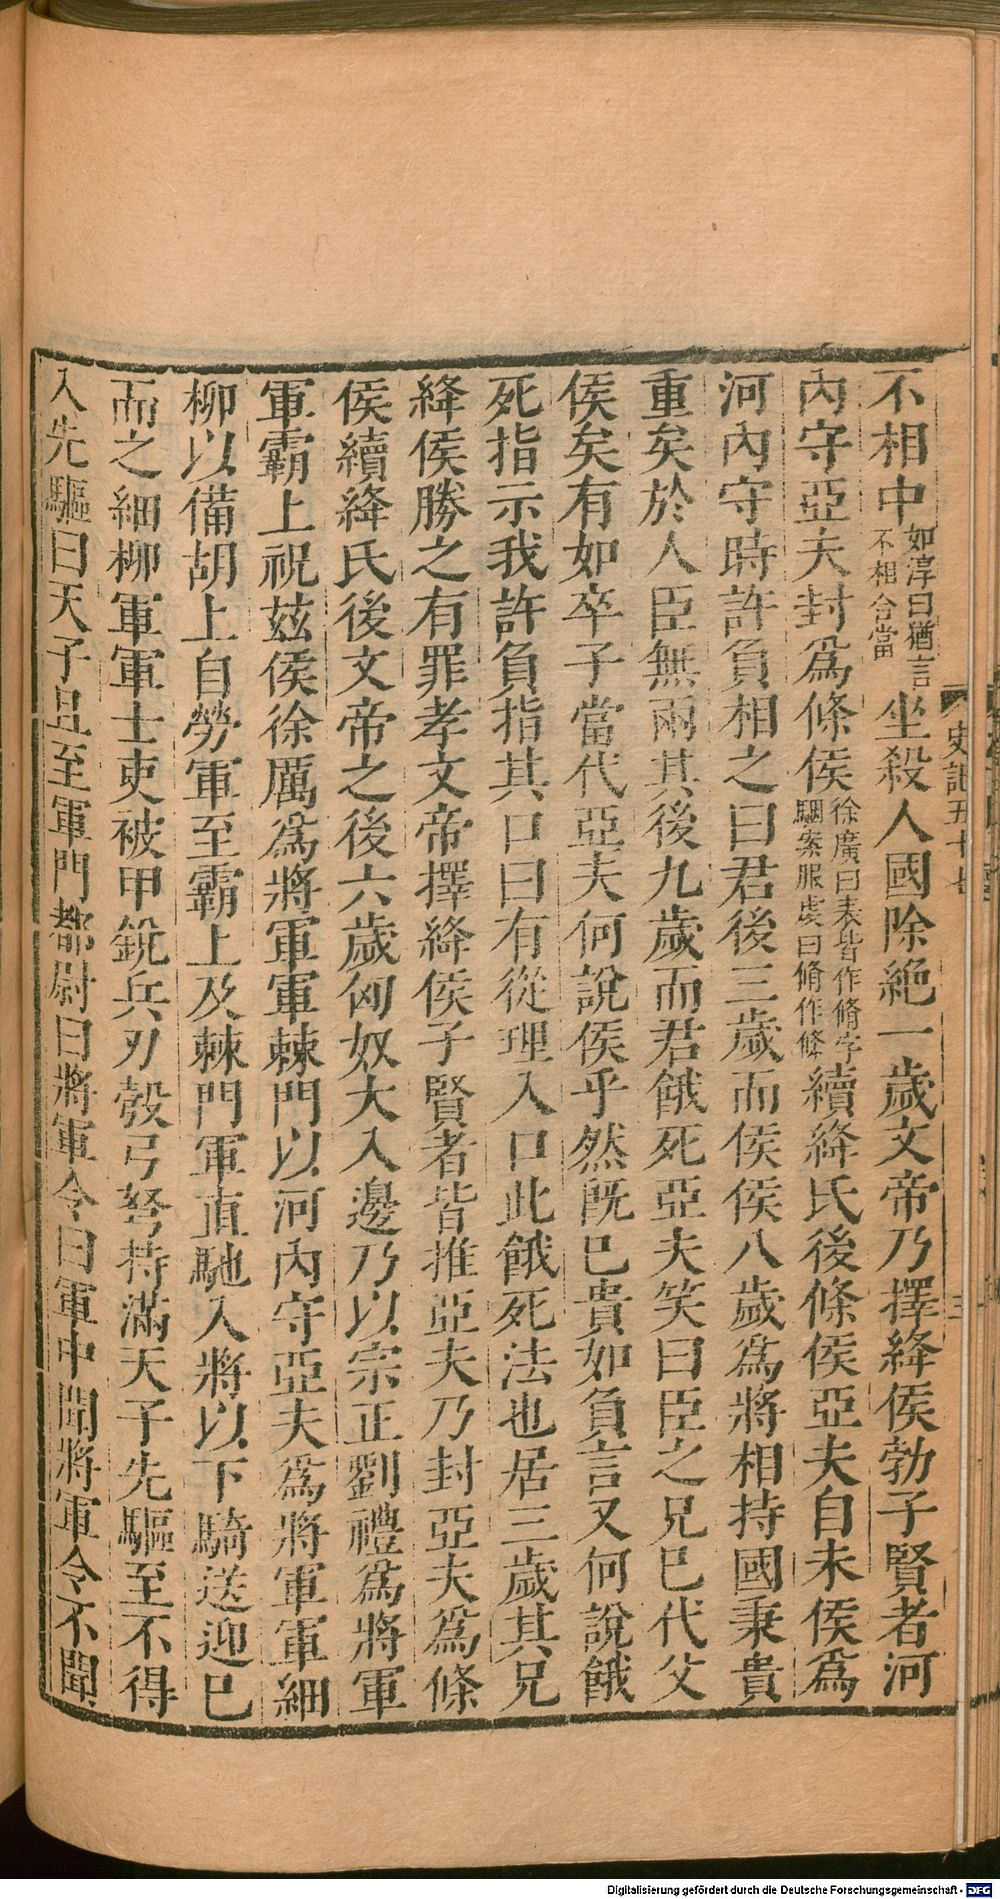 史記五十七
三
不相中如淳曰猶言不相合當坐殺人國除絶一歲文帝乃擇絳侯勃子賢者河
內守亞夫封爲條侯徐廣曰表皆作脩字駰案服虔曰脩作條續絳氏後條侯亞夫自未侯爲
河內守時許負相之曰君後三歲而侯侯八歲爲將相持國秉貴
重矣於人臣無兩其後九歲而君餓死亞夫笑曰臣之兄已代父
侯矣有如卒子當代亞夫何說侯乎然旣已貴如負言又何說餓
死指示我許負指其口曰有從理入口此餓死法也居三歲其兄
絳侯勝之有罪孝文帝擇絳侯子賢者皆推亞夫乃封亞夫爲條
侯續絳氏後文帝之後六歲匈奴大入邊乃以宗正劉禮爲將軍
軍霸上祝茲侯徐厲爲將軍軍棘門以河內守亞夫爲將軍軍細
柳以備胡上自勞軍至霸上及棘門軍直馳入將以下騎送迎已
而之細柳軍軍士吏被甲銳兵刃彀弓弩持滿天子先驅至不得
入先驅曰天子且至軍門都尉曰將軍令曰軍中聞將軍令不聞
Digitalisierung gefördert durch die Deutsche Forschungsgemeinschaft - DFG